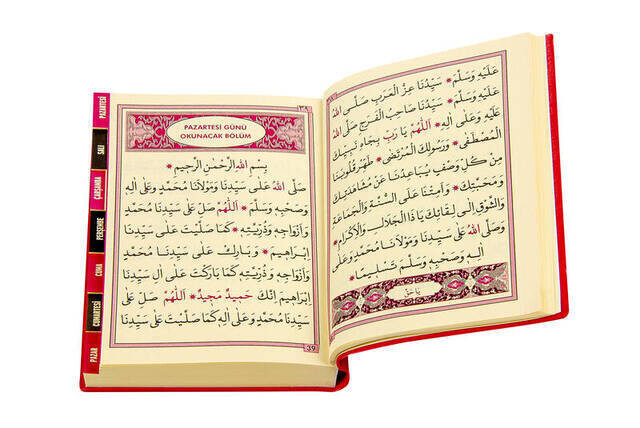 عَلَيْهِ وَسَلَّمَ * سَيِّدُنَا عِزُّ الْعَرَبِ صَلَّى اللهُ
عَلَيْهِ وَسَلَّمَ * سَيِّدُنَا صَاحِبُ الْفَرَجِ صَلَّى اللهُ
عَلَيْهِ وَعَلٰى اٰلِهِ * اَللّٰهُمَّ يَا رَبِّ بِجَاهِ نَبِيِّكَ
الْمُصْطَفٰى * وَرَسُولِكَ الْمُرْتَضٰى * طَهِّرْ قُلُوبَنَا
مِنْ كُلِّ وَصْفٍ يُبَاعِدُنَا عَنْ مُشَاهَدَتِكَ
وَمَحَبَّتِكَ * وَاَمِتْنَا عَلَى السُّنَّةِ وَالْجَمَاعَةِ
وَالشَّوْقِ اِلٰى لِقَائِكَ يَا ذَا الْجَلَالِ وَالْاِكْرَامِ *
وَصَلَّى اللهُ عَلٰى سَيِّدِنَا وَمَوْلَانَا مُحَمَّدٍ وَعَلٰى
اٰلِهِ وَصَحْبِهِ وَسَلَّمَ تَسْلِيمًا *
PAZARTESİ GÜNÜ
OKUNACAK BÖLÜM
* بِسْمِ اللهِ الرَّحْمٰنِ الرَّحِيمِ *
صَلَّى اللهُ عَلٰى سَيِّدِنَا وَمَوْلَانَا مُحَمَّدٍ وَعَلٰى اٰلِهِ
وَصَحْبِهِ وَسَلَّمَ * اَللّٰهُمَّ صَلِّ عَلٰى سَيِّدِنَا مُحَمَّدٍ
وَاَزْوَاجِهِ وَذُرِّيَّتِهِ * كَمَا صَلَّيْتَ عَلٰى سَيِّدِنَا
اِبْرَاهِيمَ * وَبَارِكْ عَلٰى سَيِّدِنَا مُحَمَّدٍ
وَاَزْوَاجِهِ وَذُرِّيَّتِهِ كَمَا بَارَكْتَ عَلٰى اٰلِ سَيِّدِنَا
اِبْرَاهِيمَ اِنَّكَ حَمِيدٌ مَجِيدٌ * اَللّٰهُمَّ صَلِّ عَلٰى
سَيِّدِنَا مُحَمَّدٍ وَعَلٰى اٰلِهِ كَمَا صَلَّيْتَ عَلٰى سَيِّدِنَا
39
PAZARTESİ
SALI
ÇARŞAMBA
PERŞEMBE
CUMA
CUMARTESİ
PAZAR